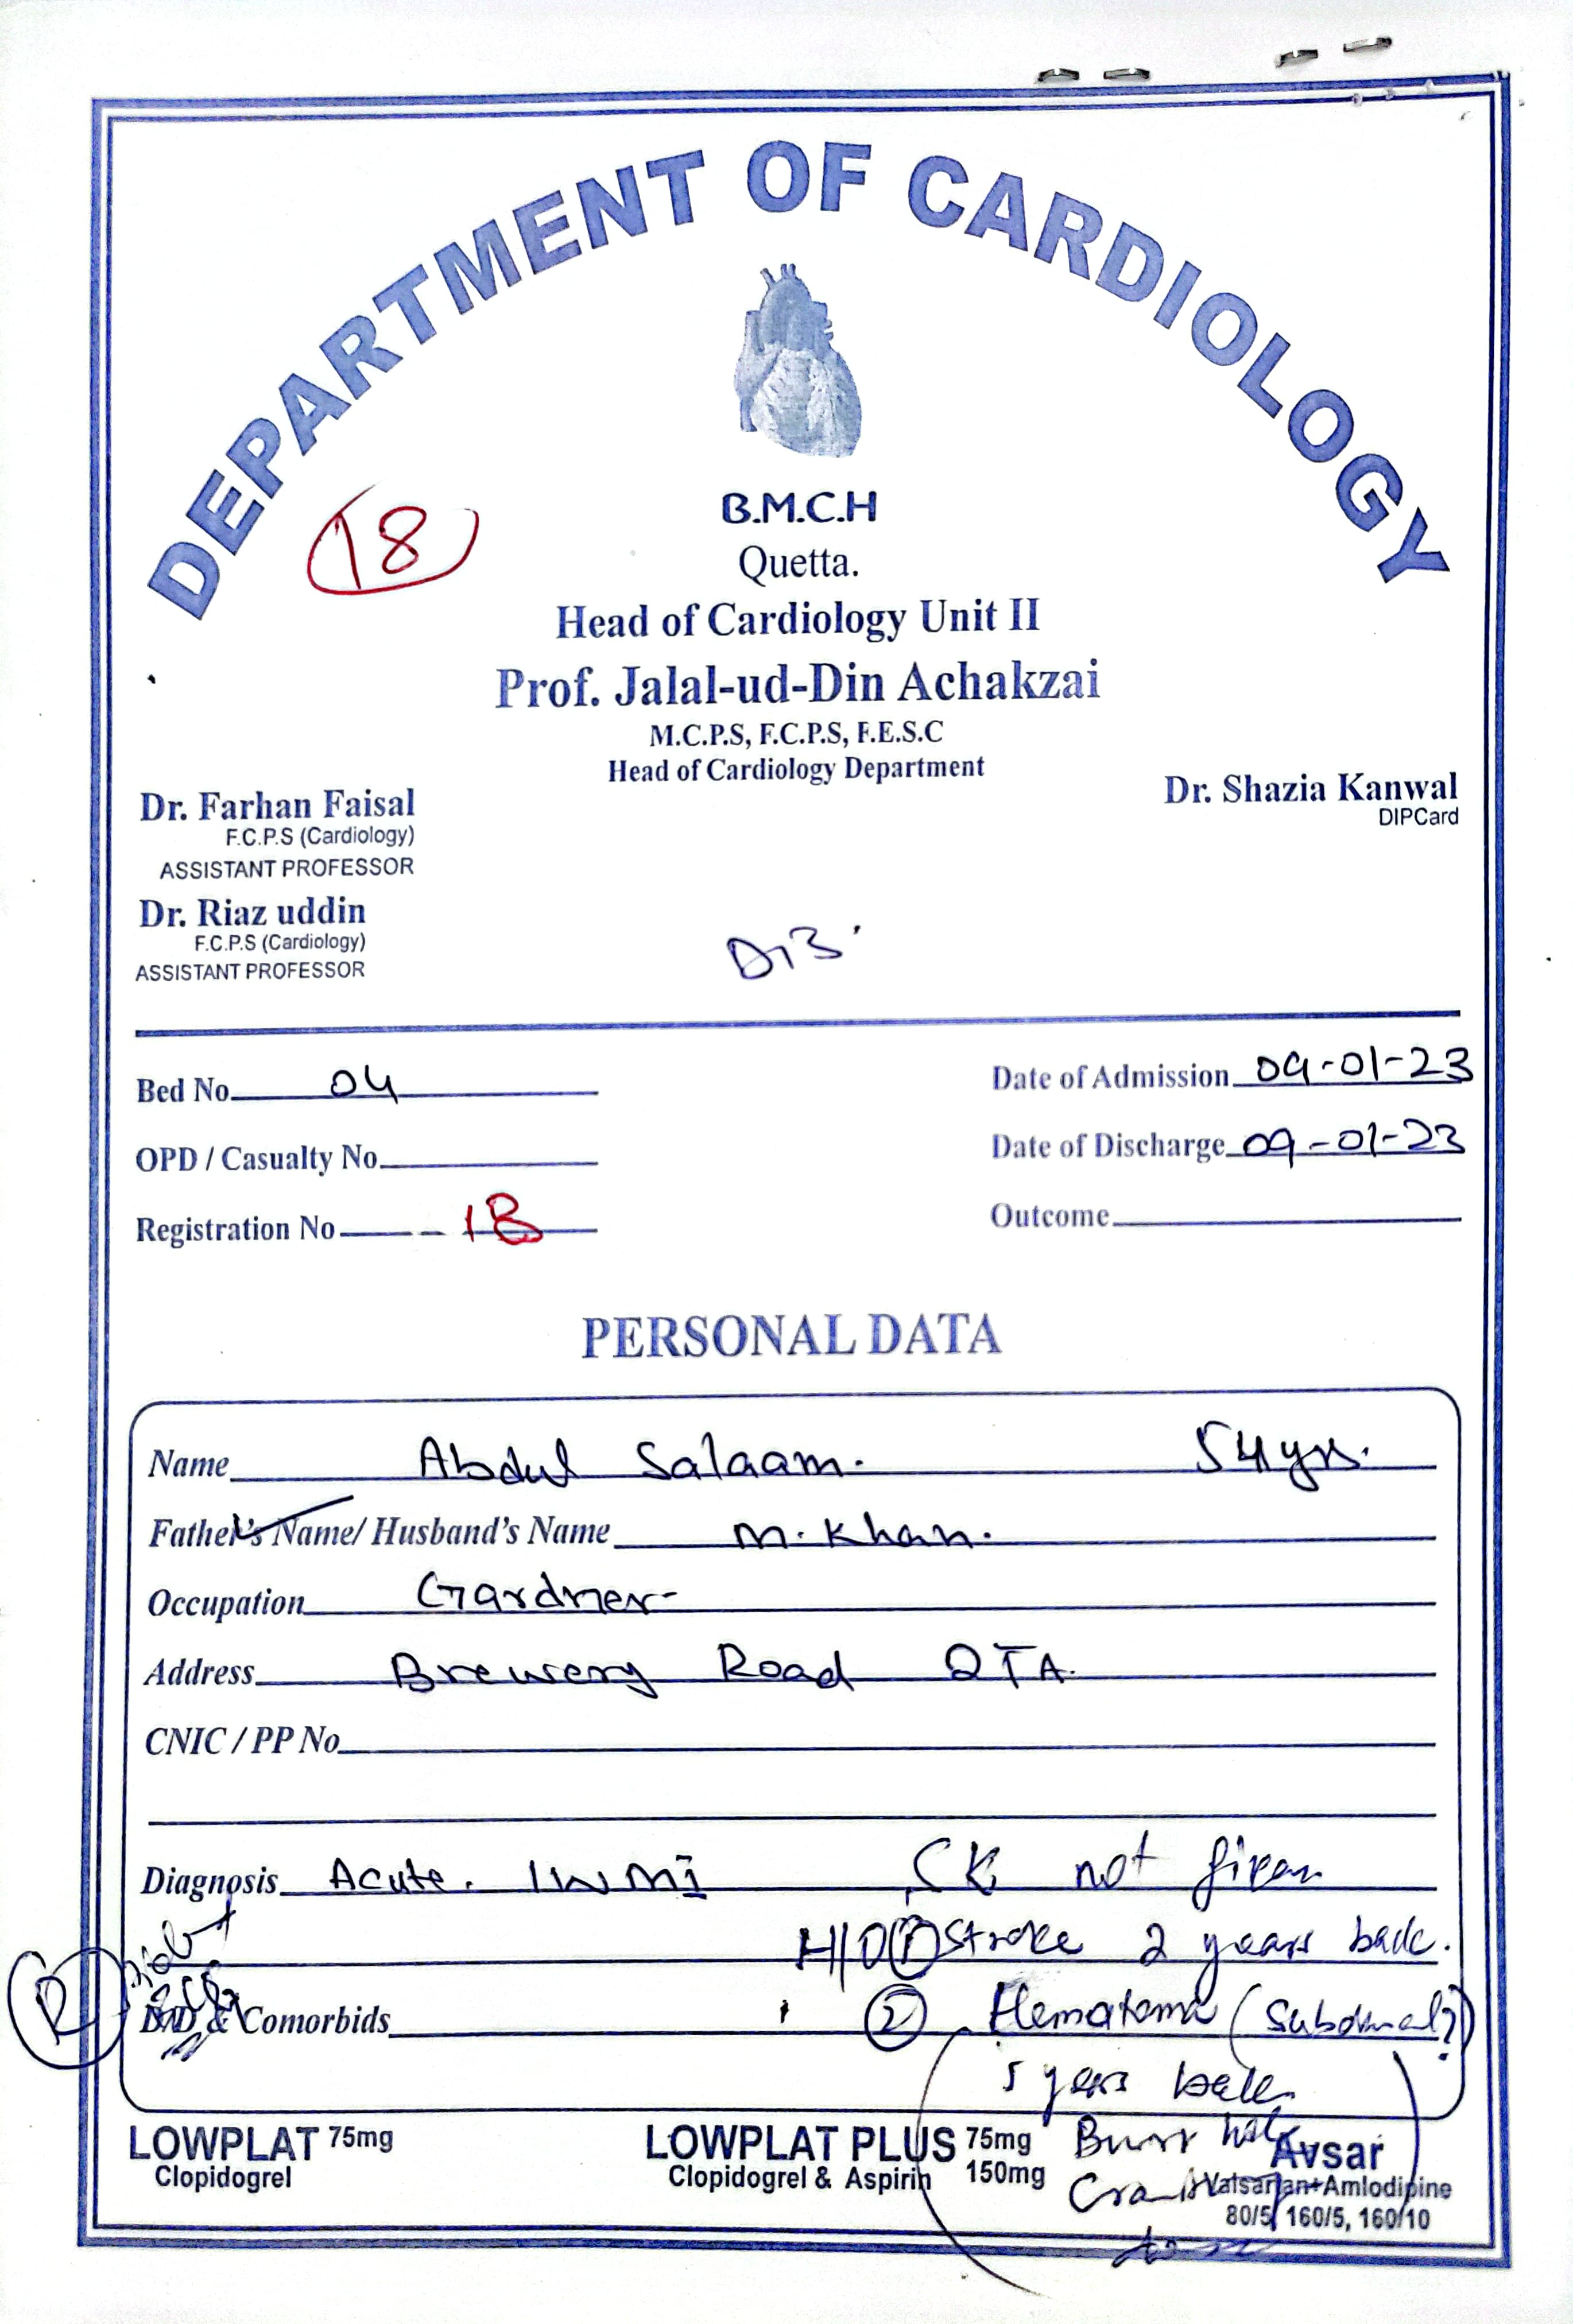 DEPARTMENT OF CARDIOLOGY
18
B.M.C.H
Quetta.
Head of Cardiology Unit II
Prof. Jalal-ud-Din Achakzai
M.C.P.S, F.C.P.S, F.E.S.C
Head of Cardiology Department
Dr. Farhan Faisal
F.C.P.S (Cardiology)
ASSISTANT PROFESSOR
Dr. Shazia Kanwal
DIPCard
Dr. Riaz uddin
F.C.P.S (Cardiology)
ASSISTANT PROFESSOR
Bed No 04
Date of Admission 09-01-23
OPD / Casualty No
Date of Discharge 09-01-23
Registration No 18
Outcome
PERSONAL DATA
Name Abdul Salaam. 54yrs.
Father's Name/ Husband's Name M. Khan.
Occupation Gardner
Address Brewery Road QTA.
CNIC / PP No
Diagnosis Acute. IWMI SK not given
H/O ① Stroke 2 years back.
& Comorbids ② Hematoma (Subdural?)
5 years back
Burr hole
LOWPLAT 75mg
Clopidogrel
LOWPLAT PLUS 75mg 150mg
Clopidogrel & Aspirin
Avsar
Valsartan+Amlodipine
80/5, 160/5, 160/10